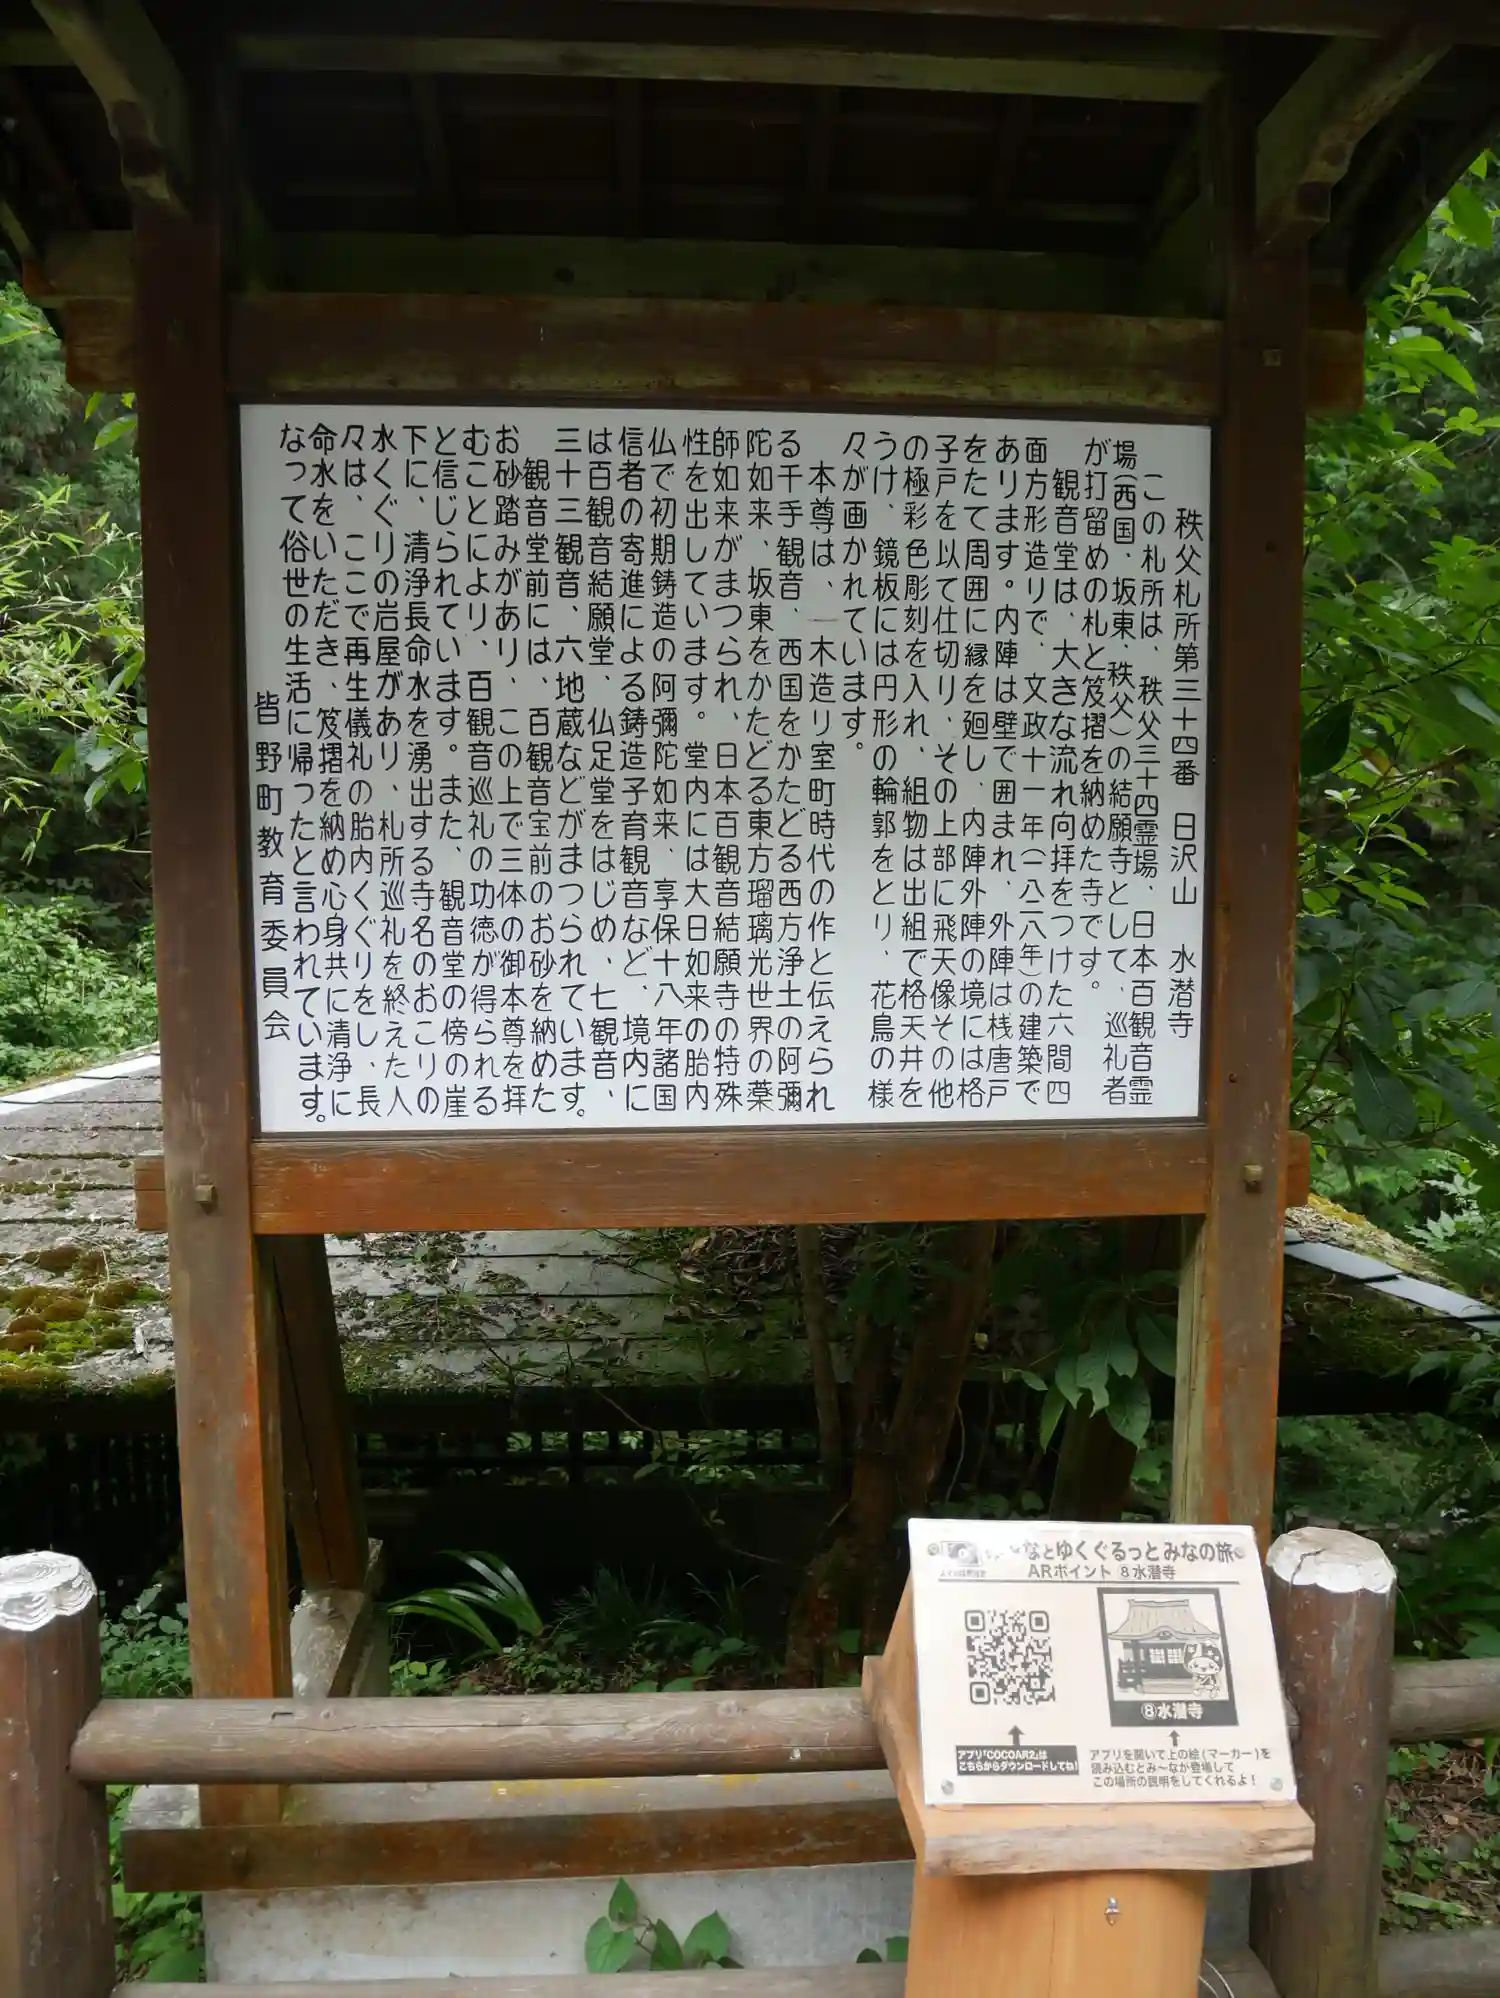 秩父札所第三十四番 日沢山 水潜寺
この札所は、秩父三十四霊場、日本百観音霊
場(西国、坂東、秩父)の結願寺として、巡礼者
が打留めの札と笈摺を納めた寺です。
観音堂は、大きな流れ向拝をつけた六間四
面方形造りで、文政十一年(一八二八年)の建築で
あります。内陣は壁で囲まれ、外陣は桟唐戸
をたて周囲に縁を廻し、内陣外陣の境には格
子戸を以て仕切り、その上部に飛天像その他
の極彩色彫刻を入れ、組物は出組で格天井を
うけ、鏡板には円形の輪郭をとり、花鳥の様
々が画かれています。
本尊は、一木造り室町時代の作と伝えられ
る千手観音、西国をかたどる西方浄土の阿彌
陀如来、坂東をかたどる東方瑠璃光世界の薬
師如来がまつられ、日本百観音結願寺の特殊
性を出しています。堂内には大日如来の胎内
仏で初期鋳造の阿彌陀如来、享保十八年諸国
信者の寄進による鋳造子育観音など、境内に
は百観音結願堂、仏足堂をはじめ、七観音、
三十三観音、六地蔵などがまつられています。
観音堂前には、百観音宝前のお砂を納めた
お砂踏みがあり、この上で三体の御本尊を拝
むことにより、百観音巡礼の功徳が得られる
と信じられています。また、観音堂の傍の崖
下に、清浄長命水を湧出する寺名のおこりの
水くぐりの岩屋があり、札所巡礼を終えた人
々は、ここで再生儀礼の胎内くぐりをし、長
命水をいただき、笈摺を納め心身共に清浄に
なって俗世の生活に帰ったと言われています。
皆野町教育委員会
なとゆくぐるっとみなの旅
ARポイント ⑧水潜寺
⑧水潜寺
アプリ「COCOAR2」は
こちらからダウンロードしてね!
アプリを開いて上の絵(マーカー)を
読み込むとみ〜なが登場して
この場所の説明をしてくれるよ!